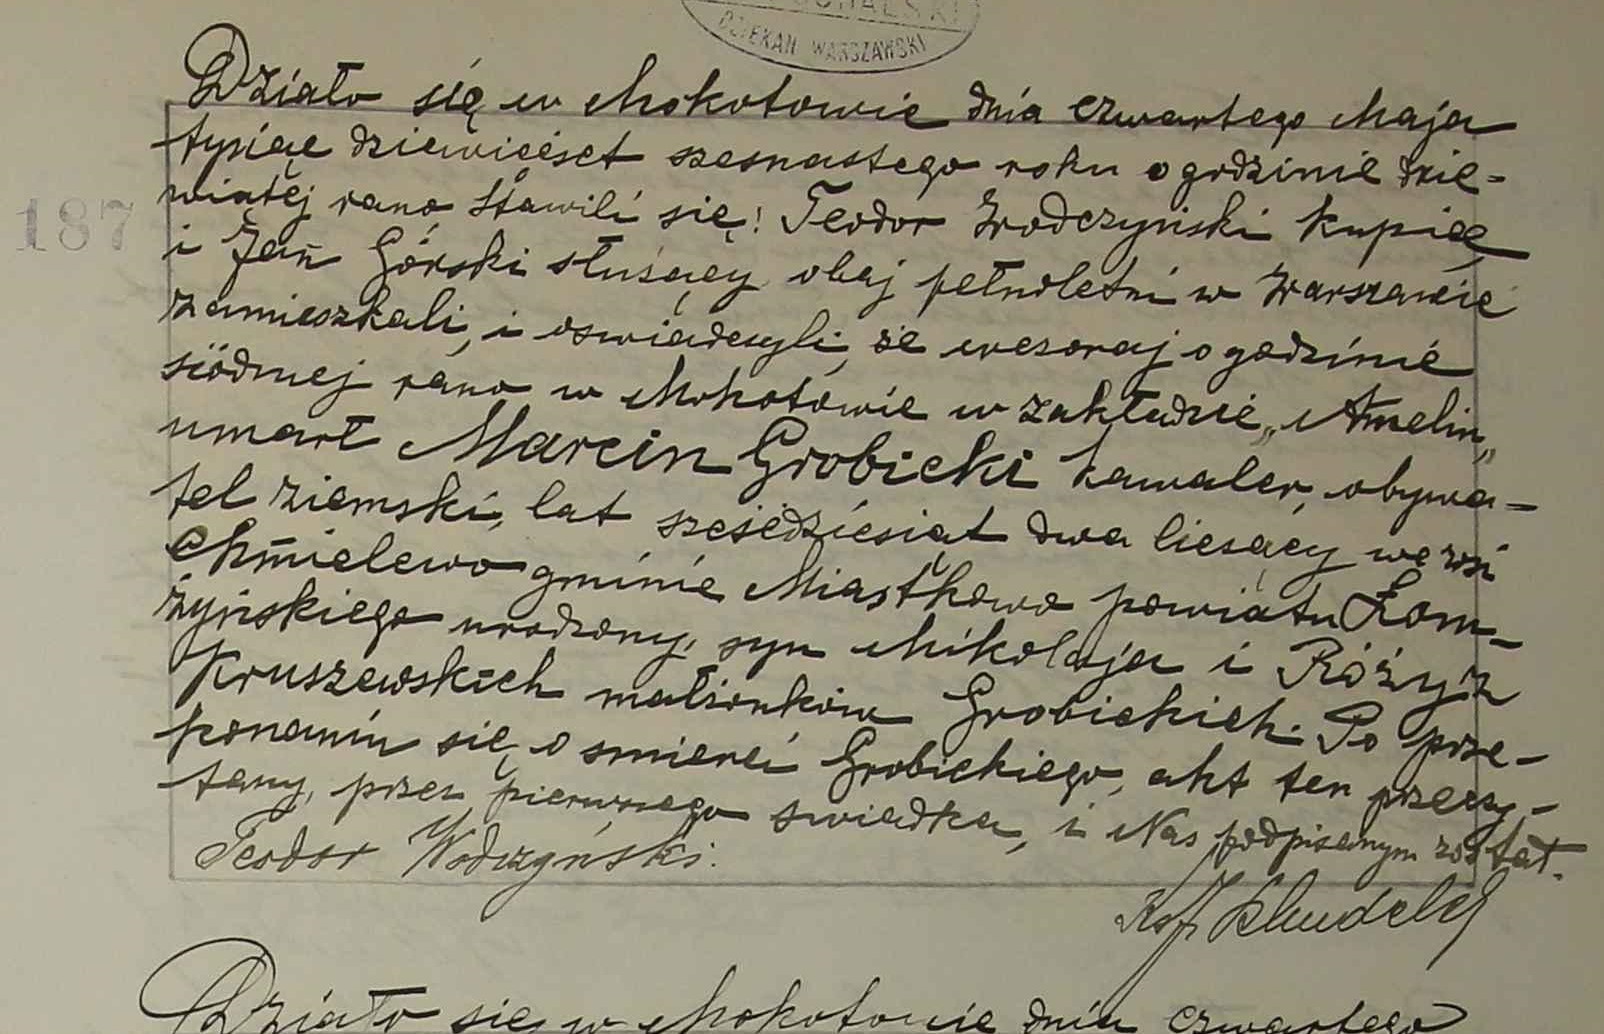 CHALSKI
DZIEKAN WARSZAWSKI
Działo się w Mokotowie dnia czwartego Maja
tysiąc dziewięćset szesnastego roku o godzinie dzie-
187
wiątej rano Stawili się: Teodor Wodczyński kupiec
i Jan Górski służący obaj pełnoletni w Warszawie
zamieszkali, i oswiadczyli, że wczoraj o godzinie
siódmej rano w Mokotowie w zakładzie „Amelin"
umarł Marcin Grobicki kawaler, obywa-
tel ziemski, lat sześćdziesiąt dwa liczący we wsi
Chmielewo gminie Miastkowo powiatu Łom-
żyńskiego urodzony, syn Mikołaja i Róży z
Kruszewskich małżonków Grobickich. Po prze-
konaniu się o smierci Grobickiego, akt ten przeczy-
tany, przez pierwszego swiadka, i Nas podpisanym został.
Teodor Wodczyński.
Ks J.
Działo się w Mokotowie dnia czwartego